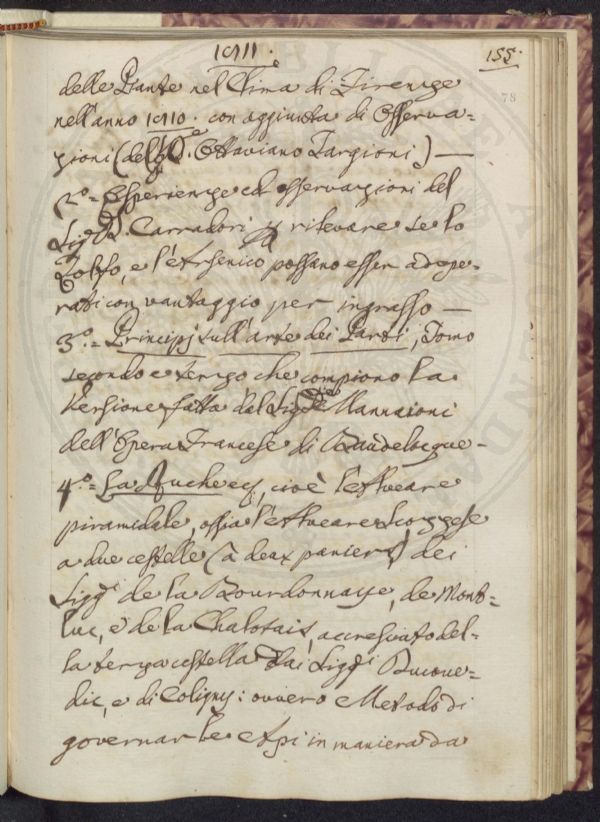 1811.
155.
78
delle Piante nel Clima di Firenze
nell'anno 1810. con aggiunta di Osserva=
zioni (del Sig.e D. Ottaviano Targioni) —
2.o = Esperienze ed osservazioni del
Sig. D. Carradori p rilevare se lo
Zolfo, e l'Arsenico possano esser adope=
rati con vantaggio per ingrasso —
3.o = Principj sull'arte dei Parti, Tomo
secondo e terzo che compiono la
Versione fatta dal Sig. Mannaioni
dell'Opera Francese di Baudelocque —
4.o = La Ruche &c, cioè l'Alveare
piramidale, ossia l'Alveare Scozzese
a due cestelle (à deux paniers) dei
Sigg.i de la Bourdonnaye, de Mont=
luc, e de la Chalotais, accresciuto del=
la terza cestella dai Sigg.i Ducoue=
dic, e di Coligny: ovvero Metodo di
governar le Api in maniera da